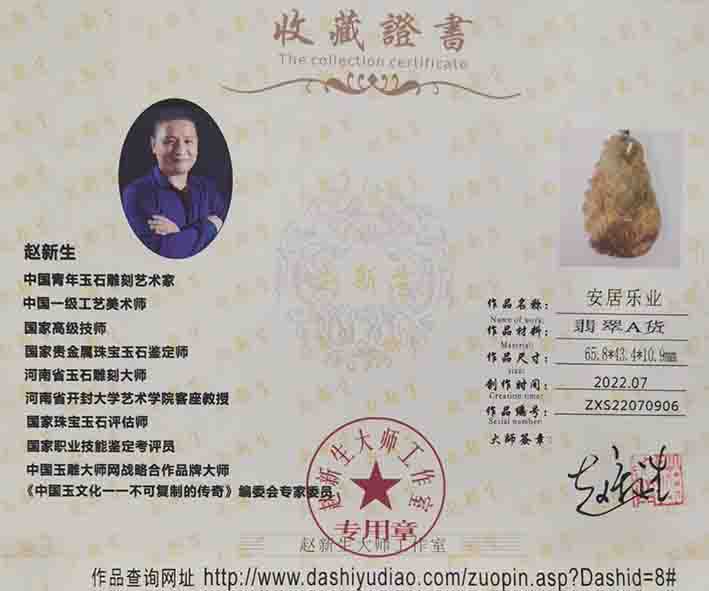 收藏證書
The collection certificate
赵新生
中国青年玉石雕刻艺术家
中国一级工艺美术师
国家高级技师
国家贵金属珠宝玉石鉴定师
河南省玉石雕刻大师
河南省开封大学艺术学院客座教授
国家珠宝玉石评估师
国家职业技能鉴定考评员
中国玉雕大师网战略合作品牌大师
《中国玉文化一一不可复制的传奇》编委会专家委员
作品名称: 安居乐业
Name of work:
作品材料: 翡翠A货
Material:
作品尺寸: 65.8*43.4*10.9mm
size:
创作时间: 2022.07
Creation time:
作品编号: ZXS22070906
Serial number:
大师签章:
赵新生
赵新生大师工作室
专用章
赵新生大师工作室
作品查询网址 http://www.dashiyudiao.com/zuopin.asp?Dashid=8#